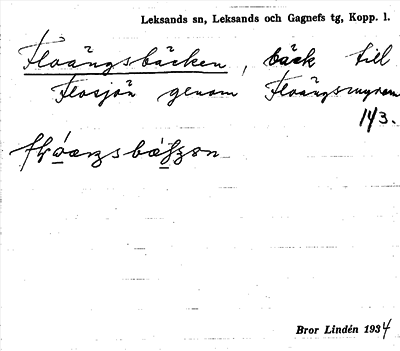 Leksands sn, Leksands och Gagnefs tg, Kopp. l.
Floängsbäcken, bäck till
Flosjön genom Floängsmyren
1/3.
Bror Lindén 1934